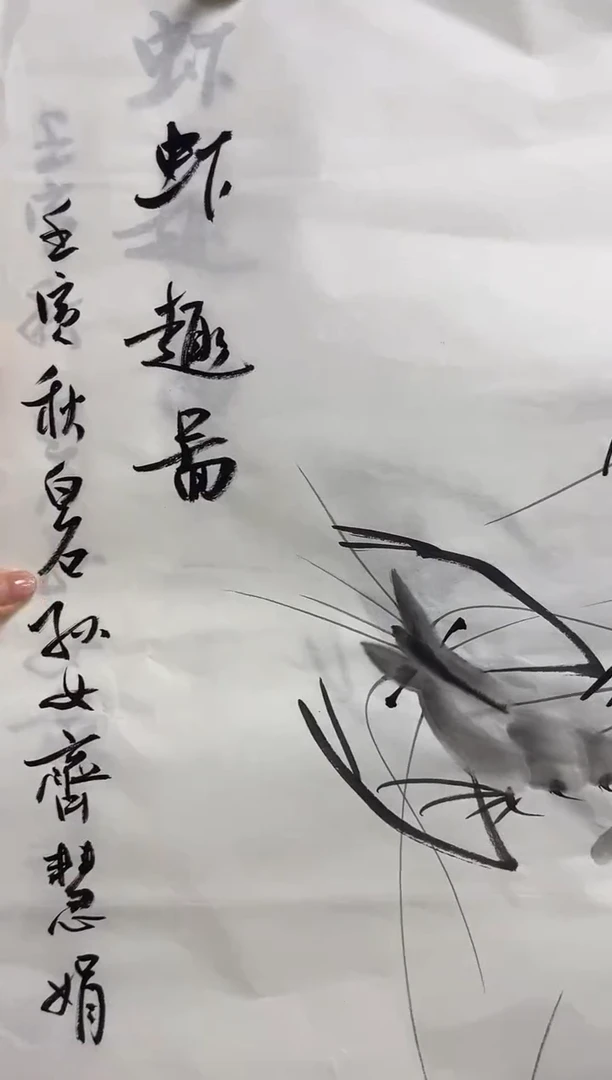 虾趣啚
壬寅秋白石孙女齊慧娟